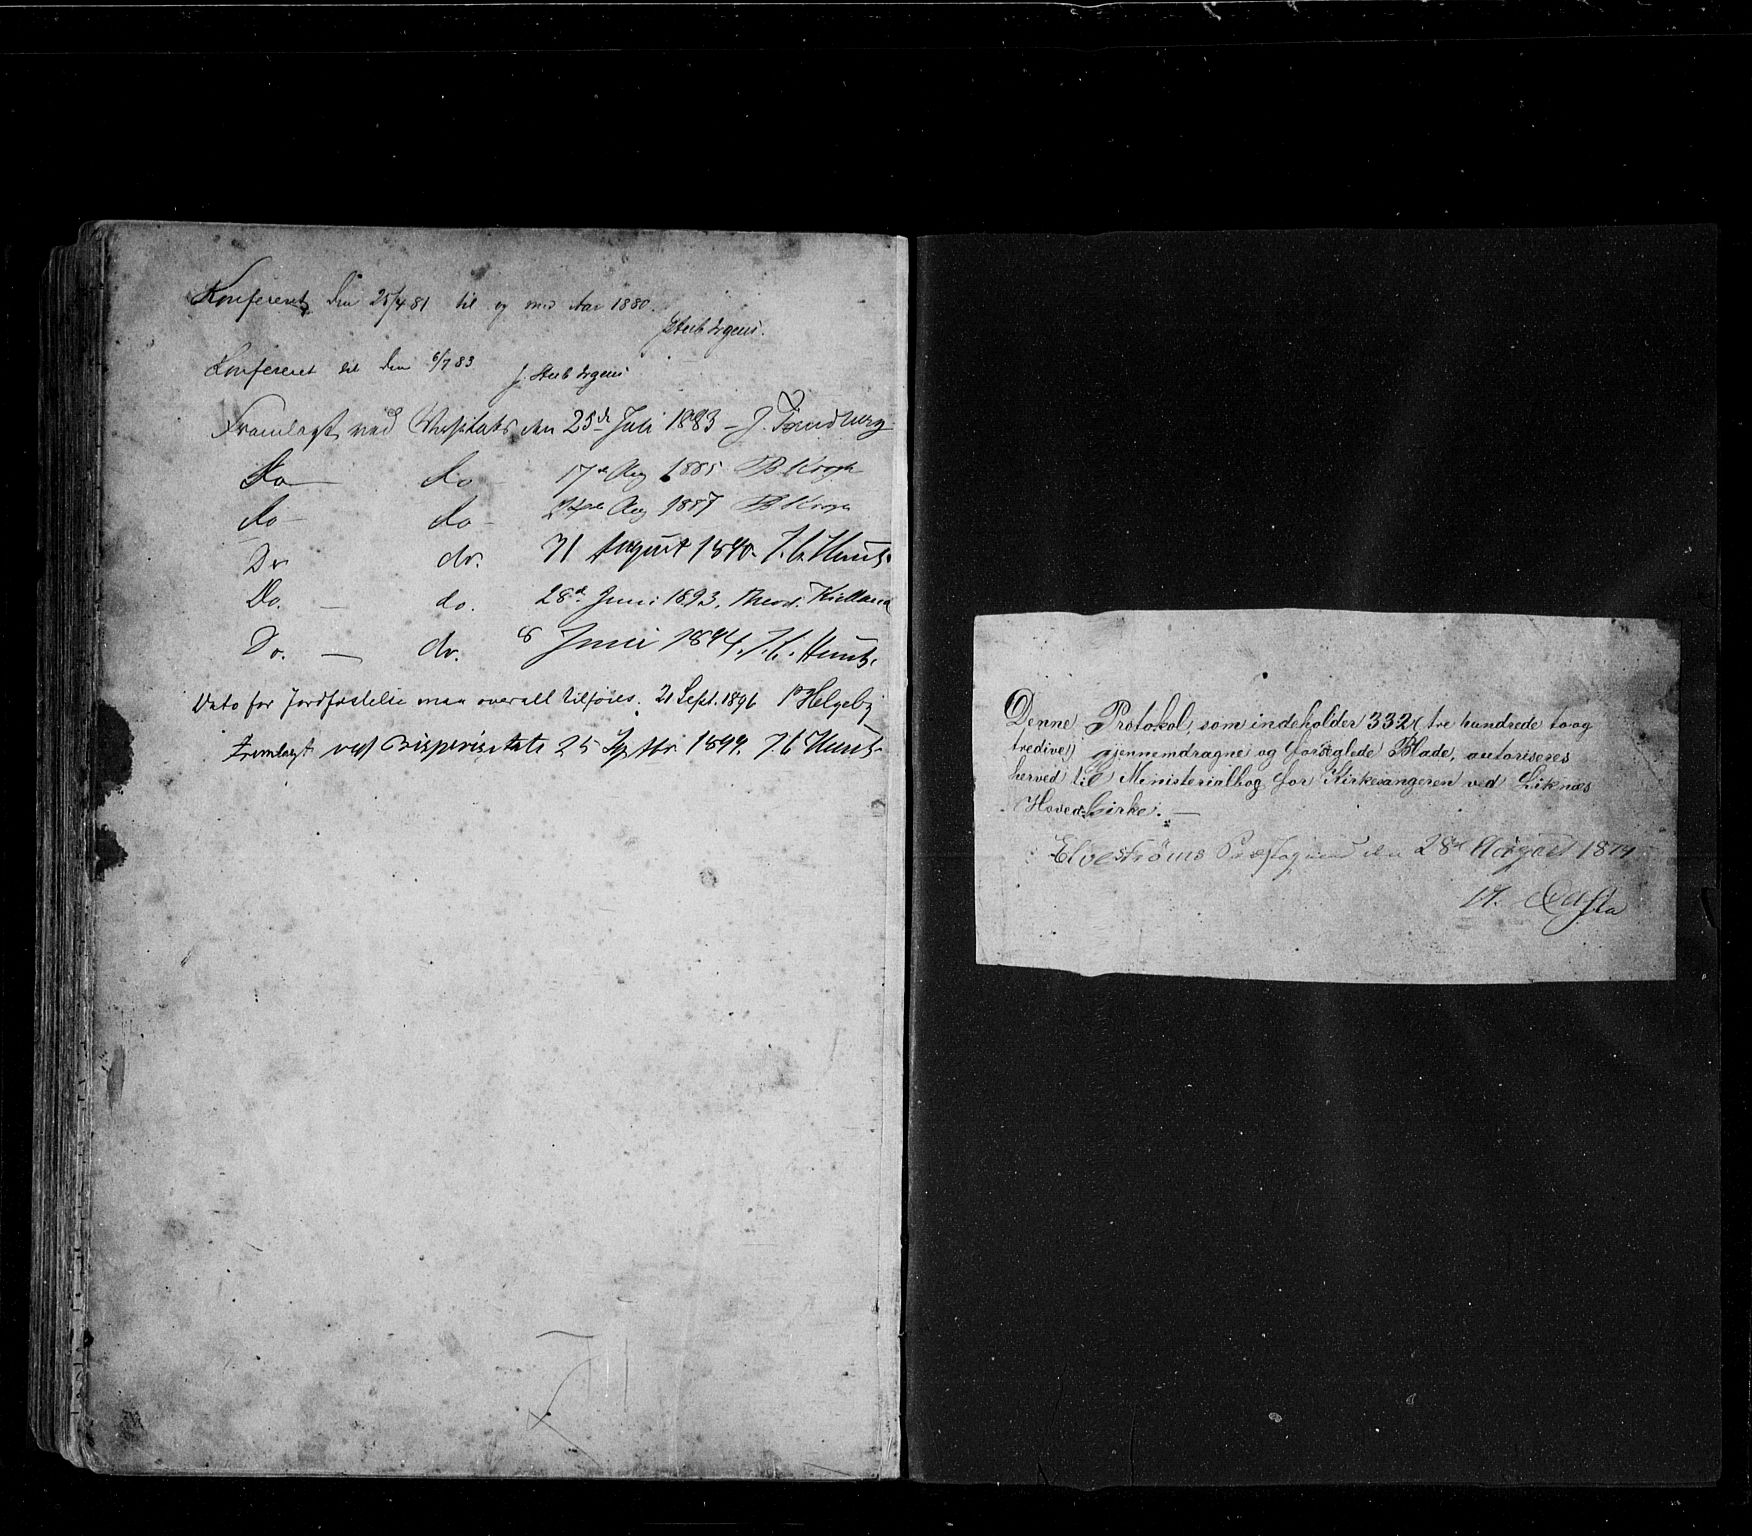 Konfereret den 25/4 81 til og med Aar 1880.
J. Steeb Irgens.
Konfereret til den 6/7 83 J. Steeb Irgens
Fremlagt ved Visitats den 25de Juli 1883 – J. Tandberg
Do — do 17de Aug 1885 B Krogh
do – do – 24de Aug 1887 B Krogh
Do do. 21 August 1890. J. C. Heuch.
Do. — do. 28de Juni 1893, Theod. Kielland
Do. — do. 8 Juni 1894. J. C. Heuch.
Dato for Jordfæstelse maa overalt tilføies. 21 Sept. 1896 P Helgeby
Fremlagt ved Bispevisitats 25 Septbr 1899. J. C. Heuch.
Denne Protokol, som indeholder 332 (tre hundrede to og
tredive) gjennemdragne og forseglede Blade, autoriseres
herved til Ministerialbog for Kirkesangeren ved Liknæs
Hoved-Kirke. —
Elvestrøms Præstegaard den 28de August 1874